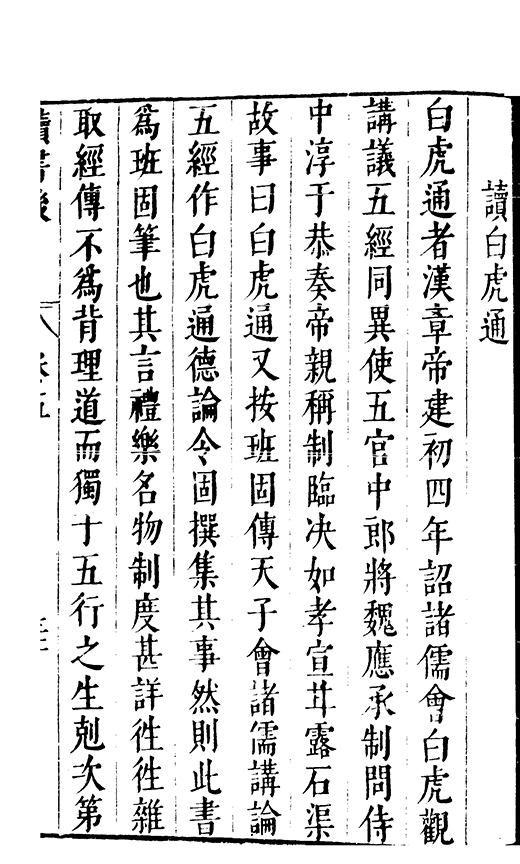 讀白虎通
白虎通者漢章帝建初四年詔諸儒會白虎觀
講議五經同異使五官中郎將魏應承制問侍
中淳于恭奏帝親稱制臨决如孝宣甘露石渠
故事曰白虎通又按班固傳天子會諸儒講論
五經作白虎通德論令固撰集其事然則此書
爲班固筆也其言禮樂名物制度甚詳徃徃雜
取經傳不爲背理道而獨于五行之生剋次第
讀書後
卷五